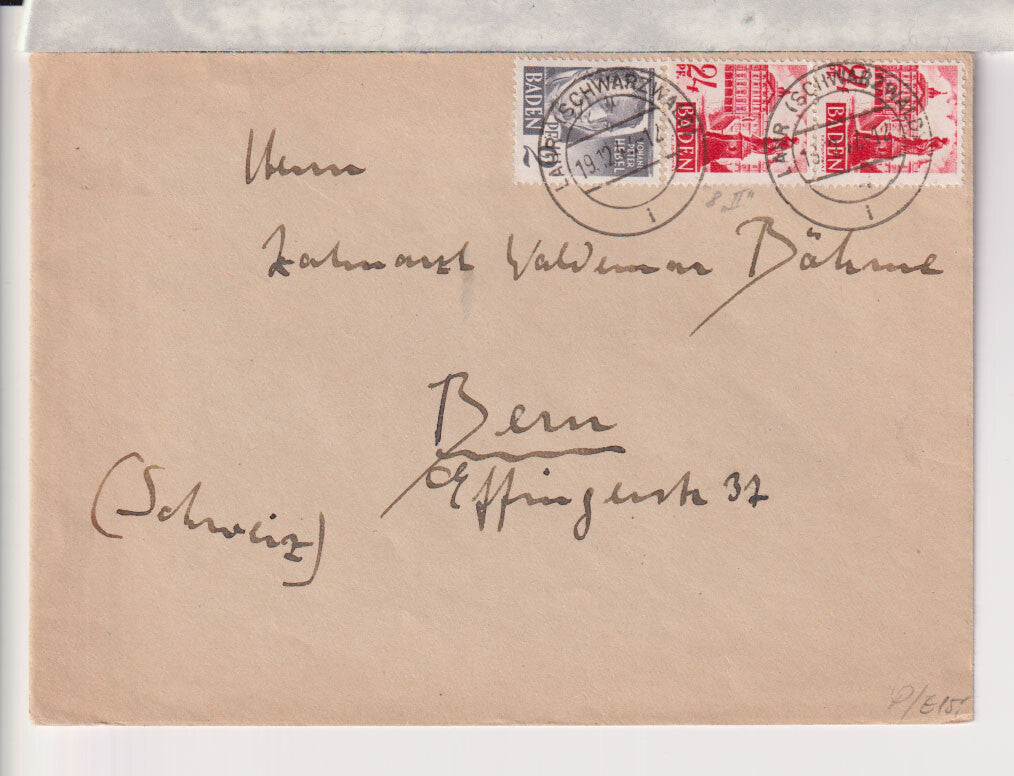 BADEN 2 PF JOHANN PETER HEBEL
24 PF. BADEN
24 BADEN
LAHR (SCHWARZWALD)
19.12.
i
LAHR (SCHWARZWALD)
i
8 „II"
Herrn
Zahnarzt Waldemar Böhme
Bern
Effingerstr 37
(Schweiz)